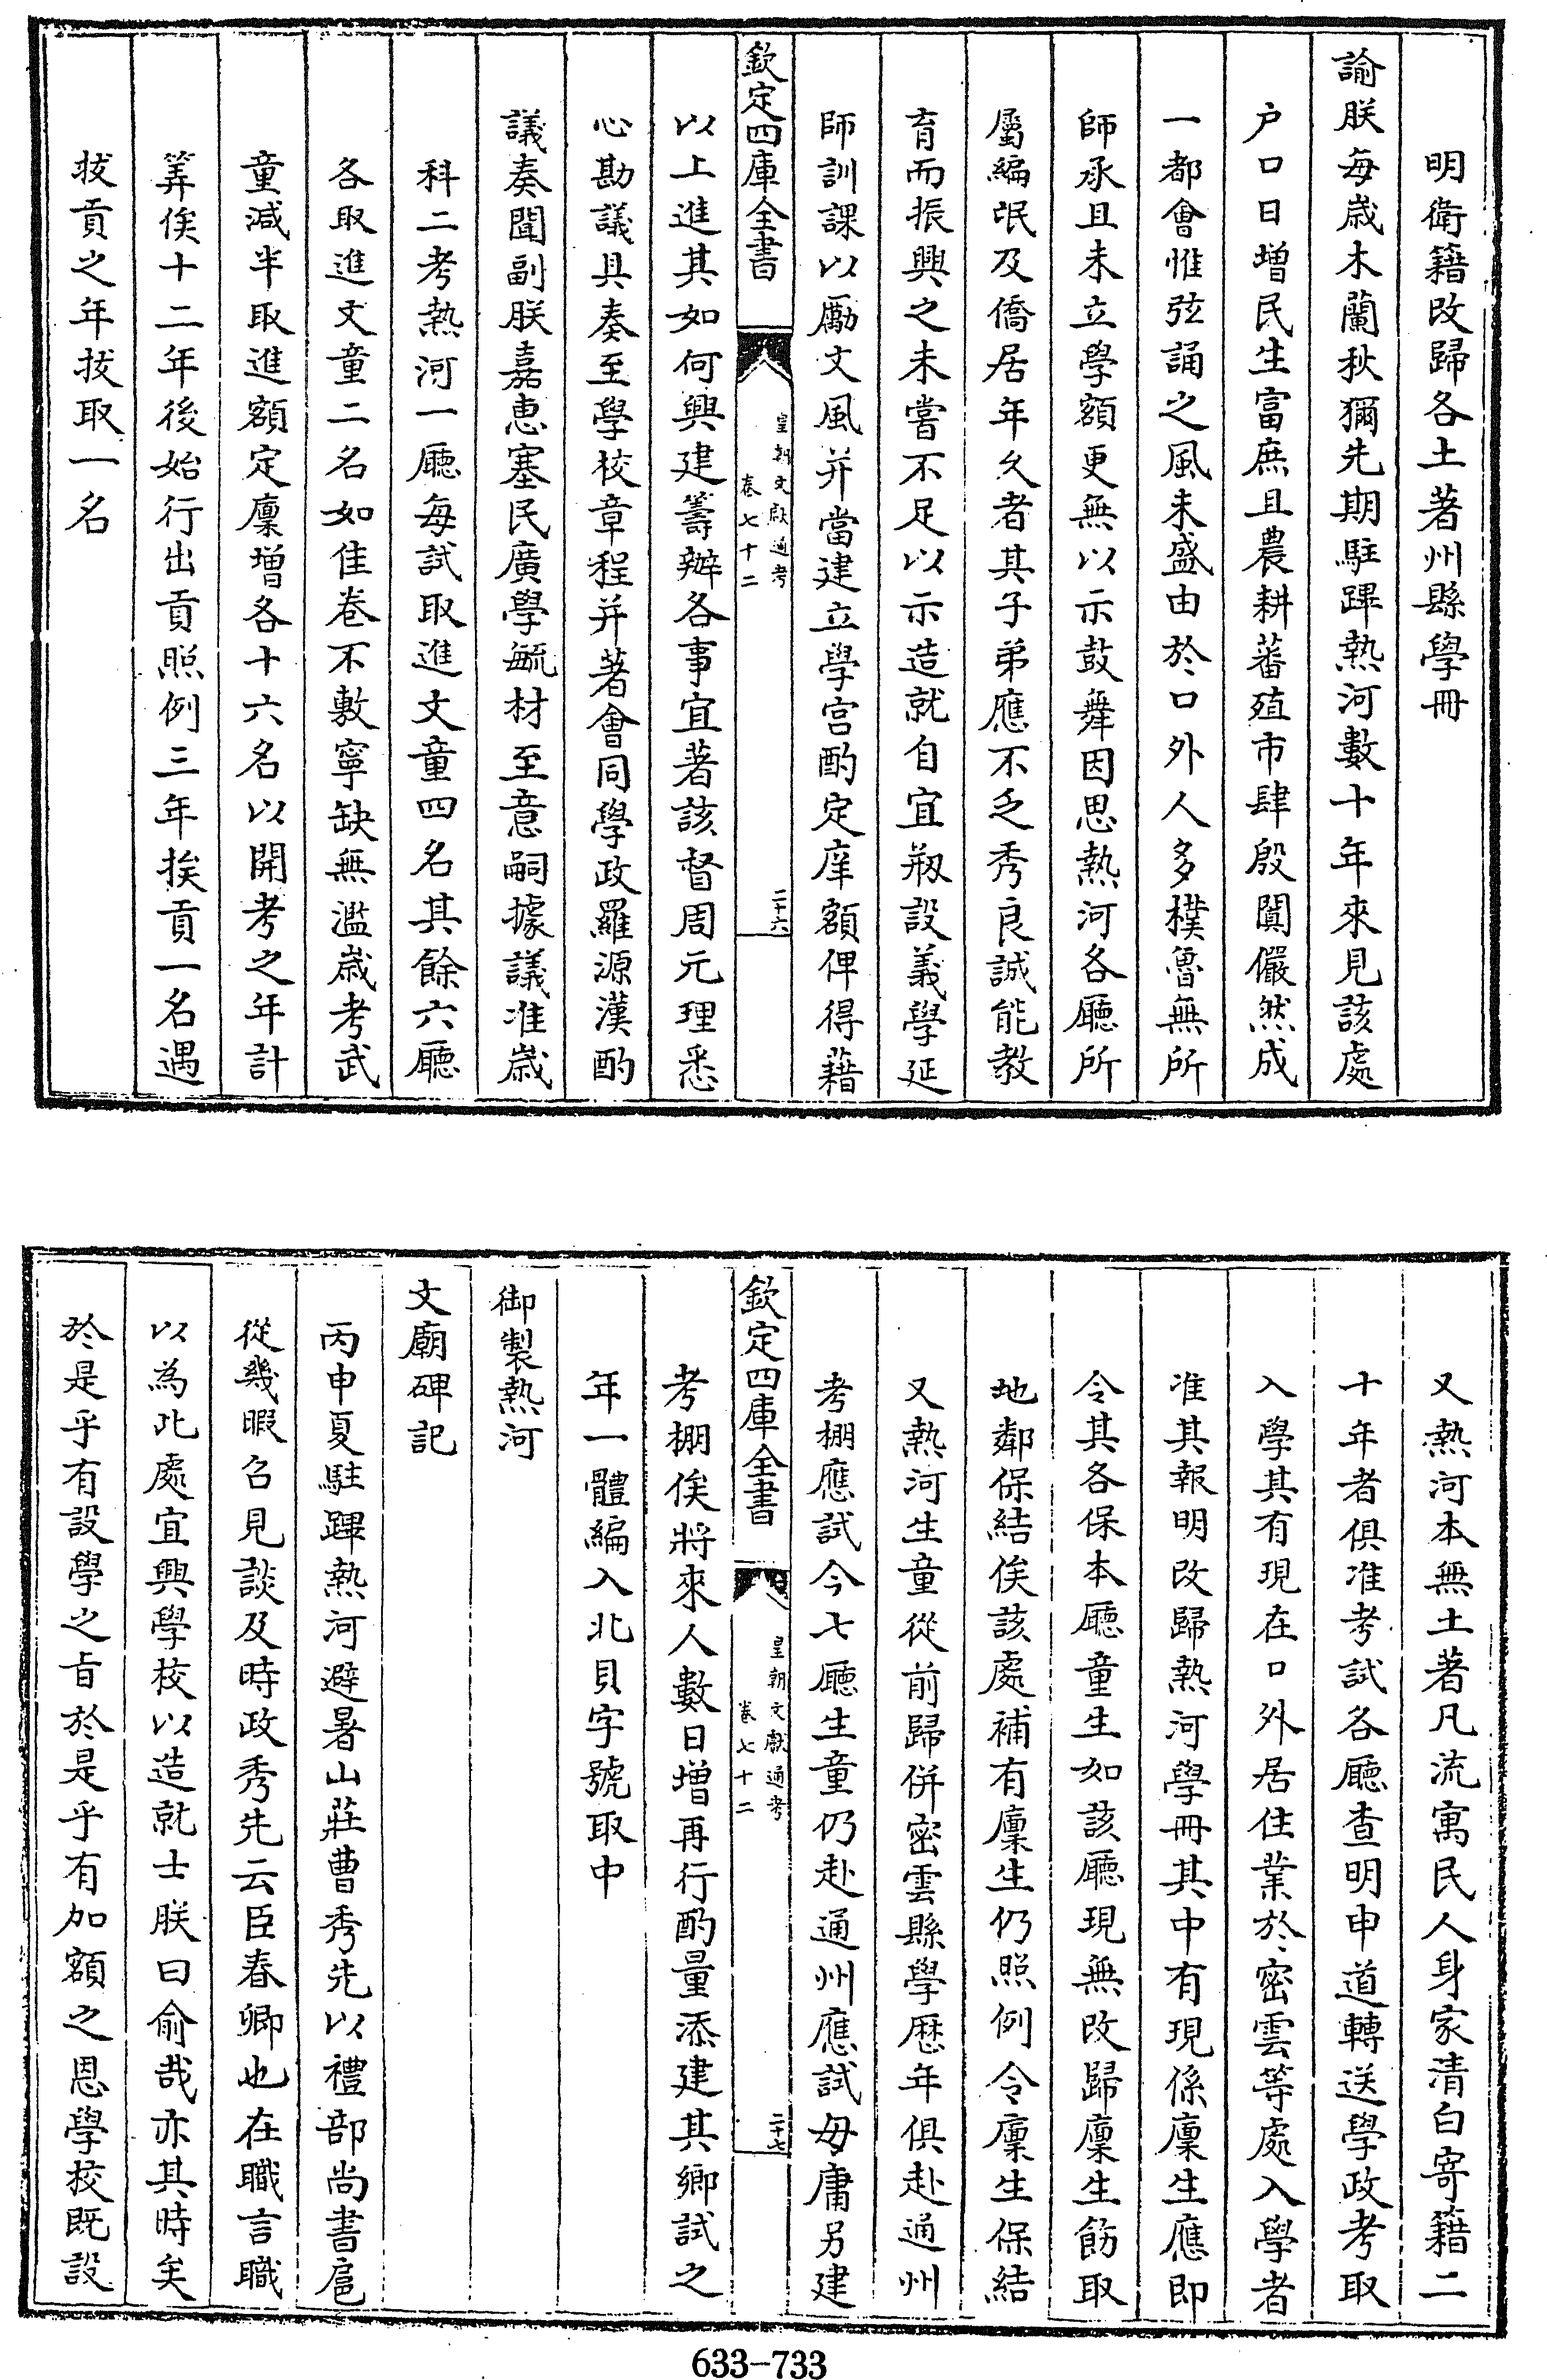 明衛籍改歸各土著州縣學冊
諭朕每歳木蘭秋獮先期駐蹕熱河數十年來見該處
戸口日增民生富庶且農耕蕃殖市肆殷闐儼然成
一都會惟弦誦之風未盛由於口外人多樸魯無所
師承且未立學額更無以示鼓舞因思熱河各廳所
屬編氓及僑居年久者其子弟應不乏秀良誠能教
育而振興之未嘗不足以示造就自宜剏設義學延
師訓課以勵文風并當建立學宮酌定庠額俾得藉
欽定四庫全書
皇朝文獻通考
卷七十二
二十六
以上進其如何興建籌辦各事宜著該督周元理悉
心勘議具奏至學校章程并著會同學政羅源漢酌
議奏聞副朕嘉惠塞民廣學毓材至意嗣據議准歳
科二考熱河一廳每試取進文童四名其餘六廳
各取進文童二名如佳卷不敷寧缺無濫歳考武
童減半取進額定廩增各十六名以開考之年計
筭俟十二年後始行出貢照例三年挨貢一名遇
拔貢之年拔取一名
又熱河本無土著凡流寓民人身家清白寄籍二
十年者俱准考試各廳查明申道轉送學政考取
入學其有現在口外居住業於密雲等處入學者
准其報明改歸熱河學冊其中有現係廩生應即
令其各保本廳童生如該廳現無改歸廩生飭取
地鄰保結俟該處補有廩生仍照例令廩生保結
又熱河生童從前歸併密雲縣學歷年俱赴通州
考棚應試今七廳生童仍赴通州應試毋庸另建
欽定四庫全書
皇朝文獻通考
卷七十二
二十七
考棚俟將來人數日增再行酌量添建其鄉試之
年一體編入北貝字號取中
御製熱河
文廟碑記
丙申夏駐蹕熱河避暑山莊曹秀先以禮部尚書扈
從幾暇召見談及時政秀先云臣春卿也在職言職
以為此處宜興學校以造就士朕曰俞哉亦其時矣
於是乎有設學之㫖於是乎有加額之恩學校既設
633-733